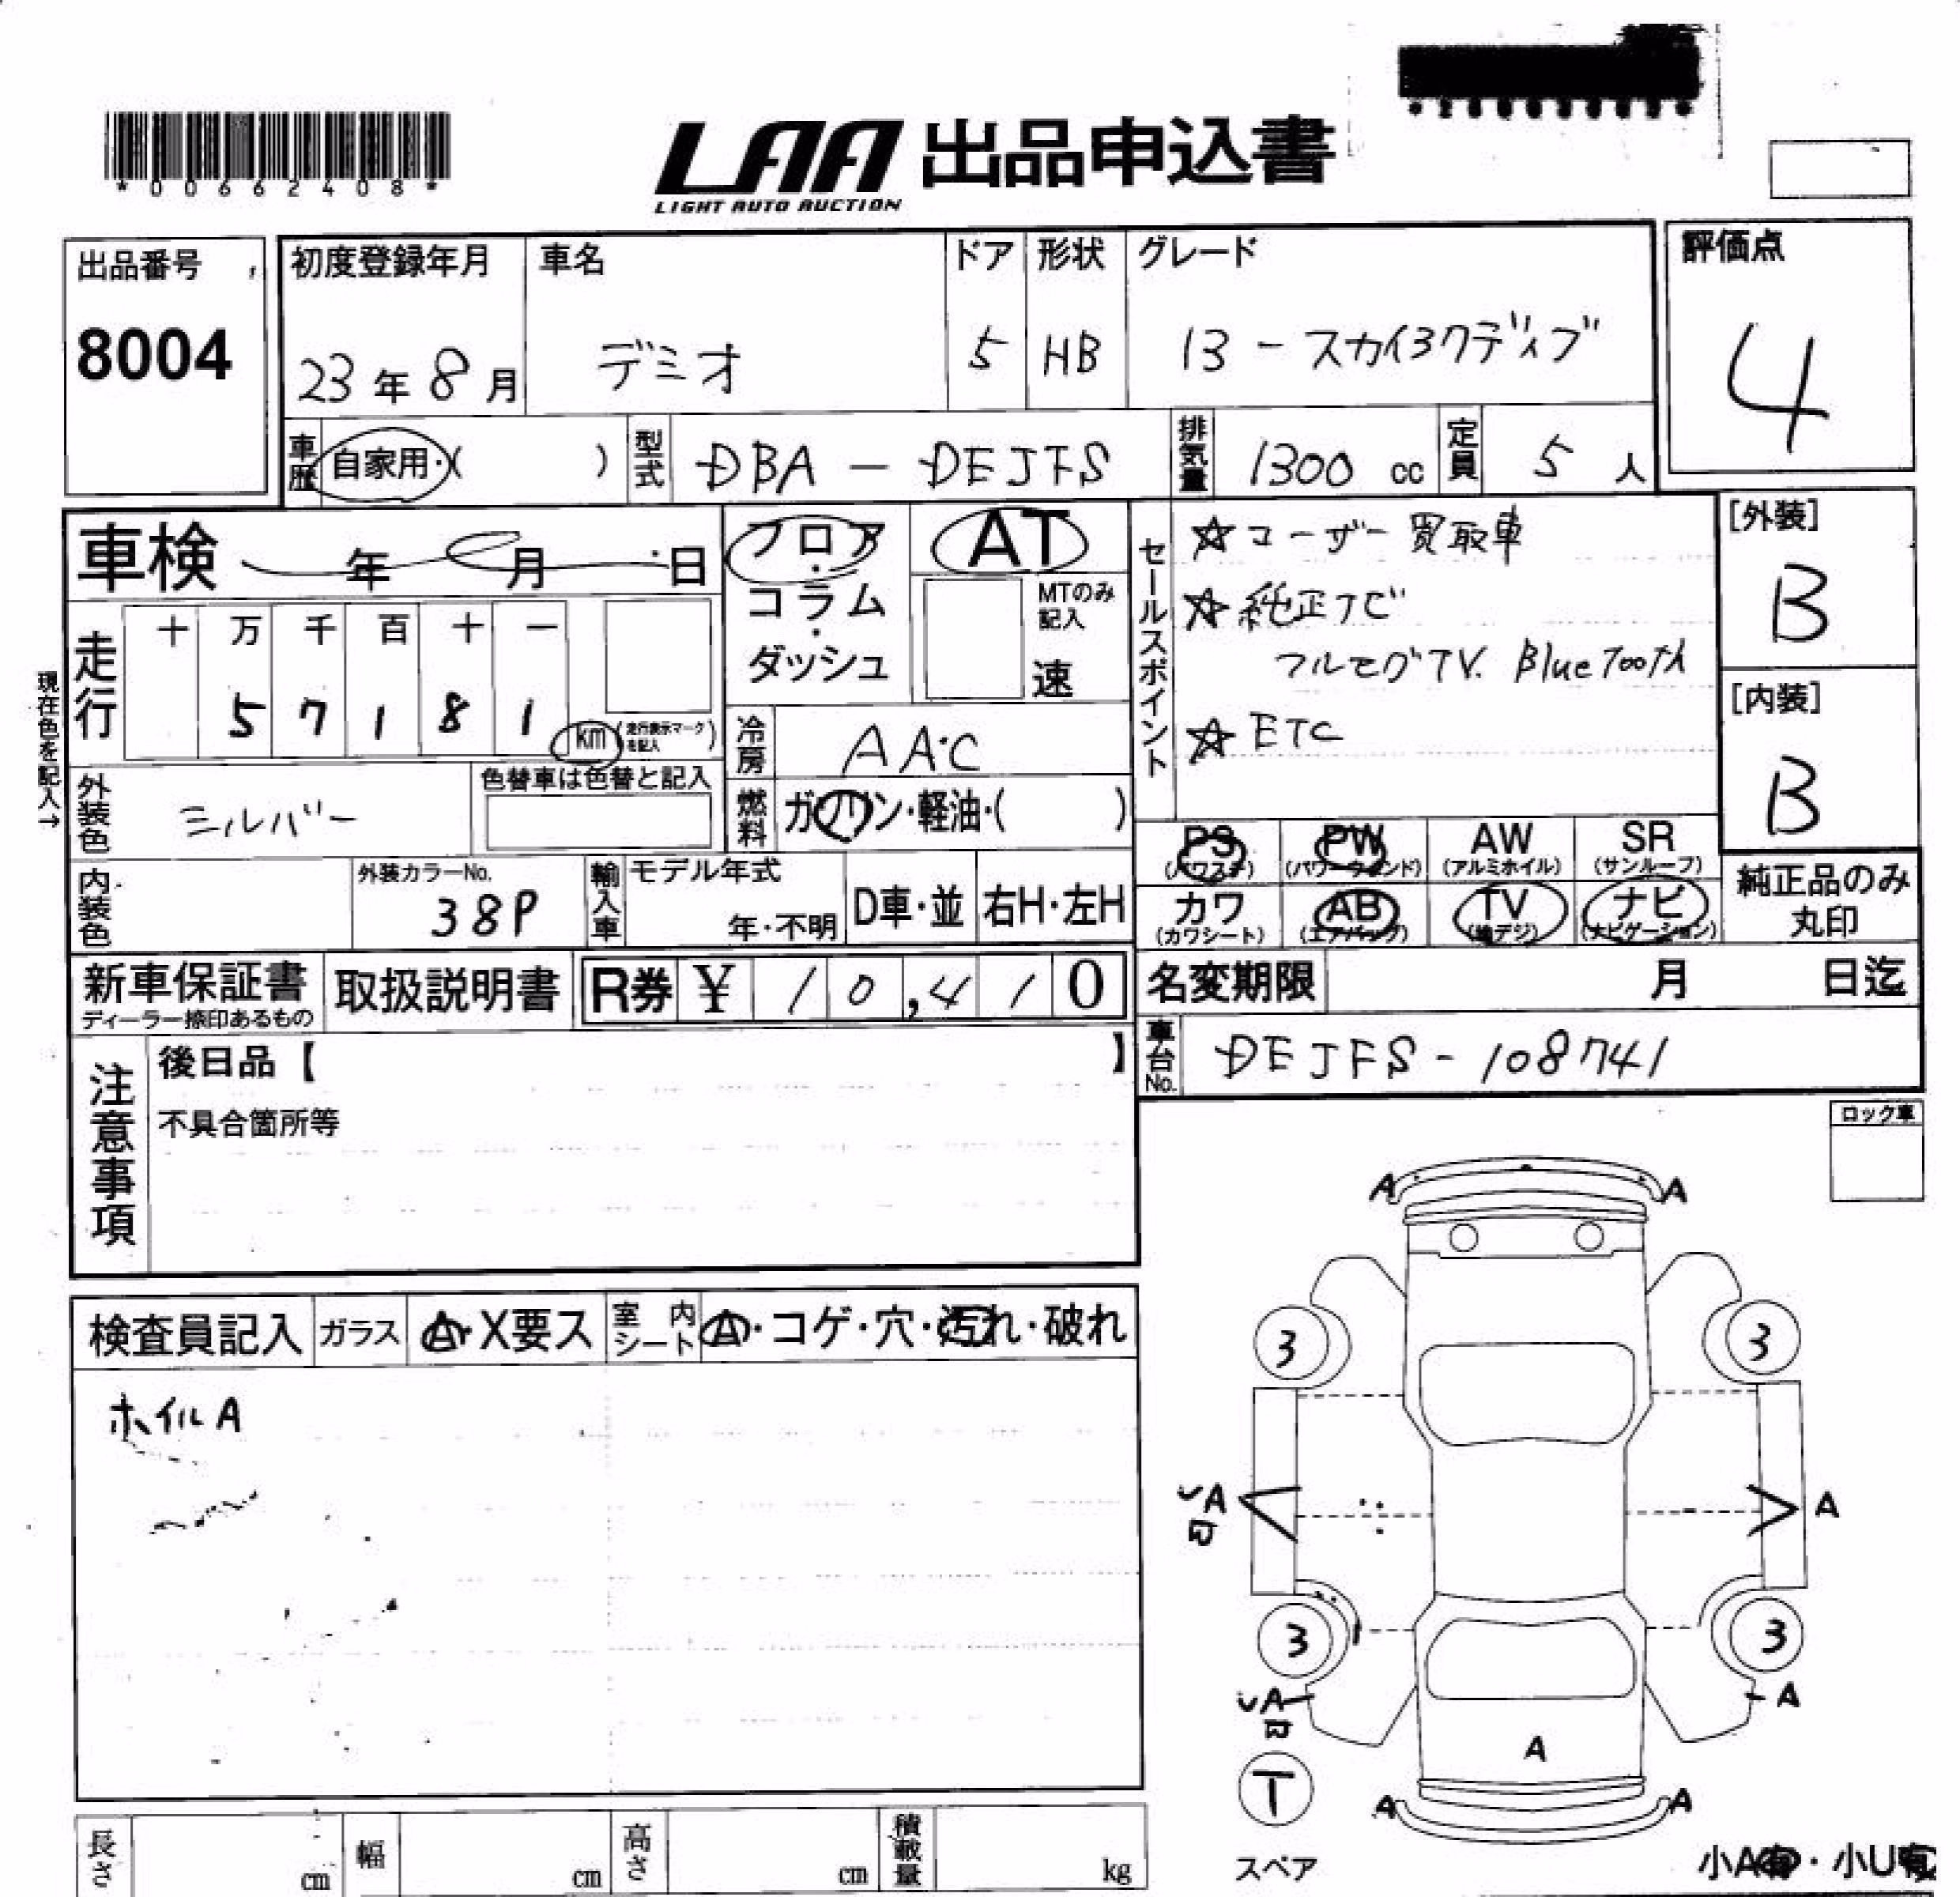 *00662408*
LAA 出品申込書
LIGHT AUTO AUCTION
出品番号
8004
初度登録年月
23年8月
車名
デミオ
ドア
5
形状
HB
グレード
13-スカイアクティブ
評価点
4
車歴
自家用・( )
型式
DBA-DEJFS
排気量
1300 cc
定員
5人
車検 年 月 日
フロア・コラム・ダッシュ
AT
MTのみ記入
速
セールスポイント
☆ユーザー買取車
☆純正ナビ
フルセグTV. BlueTooth
☆ETC
[外装]
B
[内装]
B
現在色を記入→
走行
十 万 千 百 十 一
5 7 1 8 1
km (走行表示マークを記入)
冷房
AAC
燃料
ガソリン・軽油・( )
外装色
シルバー
色替車は色替と記入
内装色
外装カラーNo.
38P
輸入車
モデル年式
年・不明
D車・並
右H・左H
PS (パワステ)
PW (パワーウィンド)
AW (アルミホイル)
SR (サンルーフ)
カワ (カワシート)
AB (エアバッグ)
TV (地デジ)
ナビ (ナビゲーション)
純正品のみ
丸印
新車保証書
ディーラー捺印あるもの
取扱説明書
R券 ¥ 10,410
名変期限 月 日迄
車台No.
DEJFS-108741
注意事項
後日品【 】
不具合箇所等
ロック車
検査員記入
ガラス
A・X要ス
室内シート
A・コゲ・穴・汚れ・破れ
ホイルA
A A
3 3
A A
3 3
A A
A
T
A A
スペア
小A有・小U有
長さ cm
幅 cm
高さ cm
積載量 kg